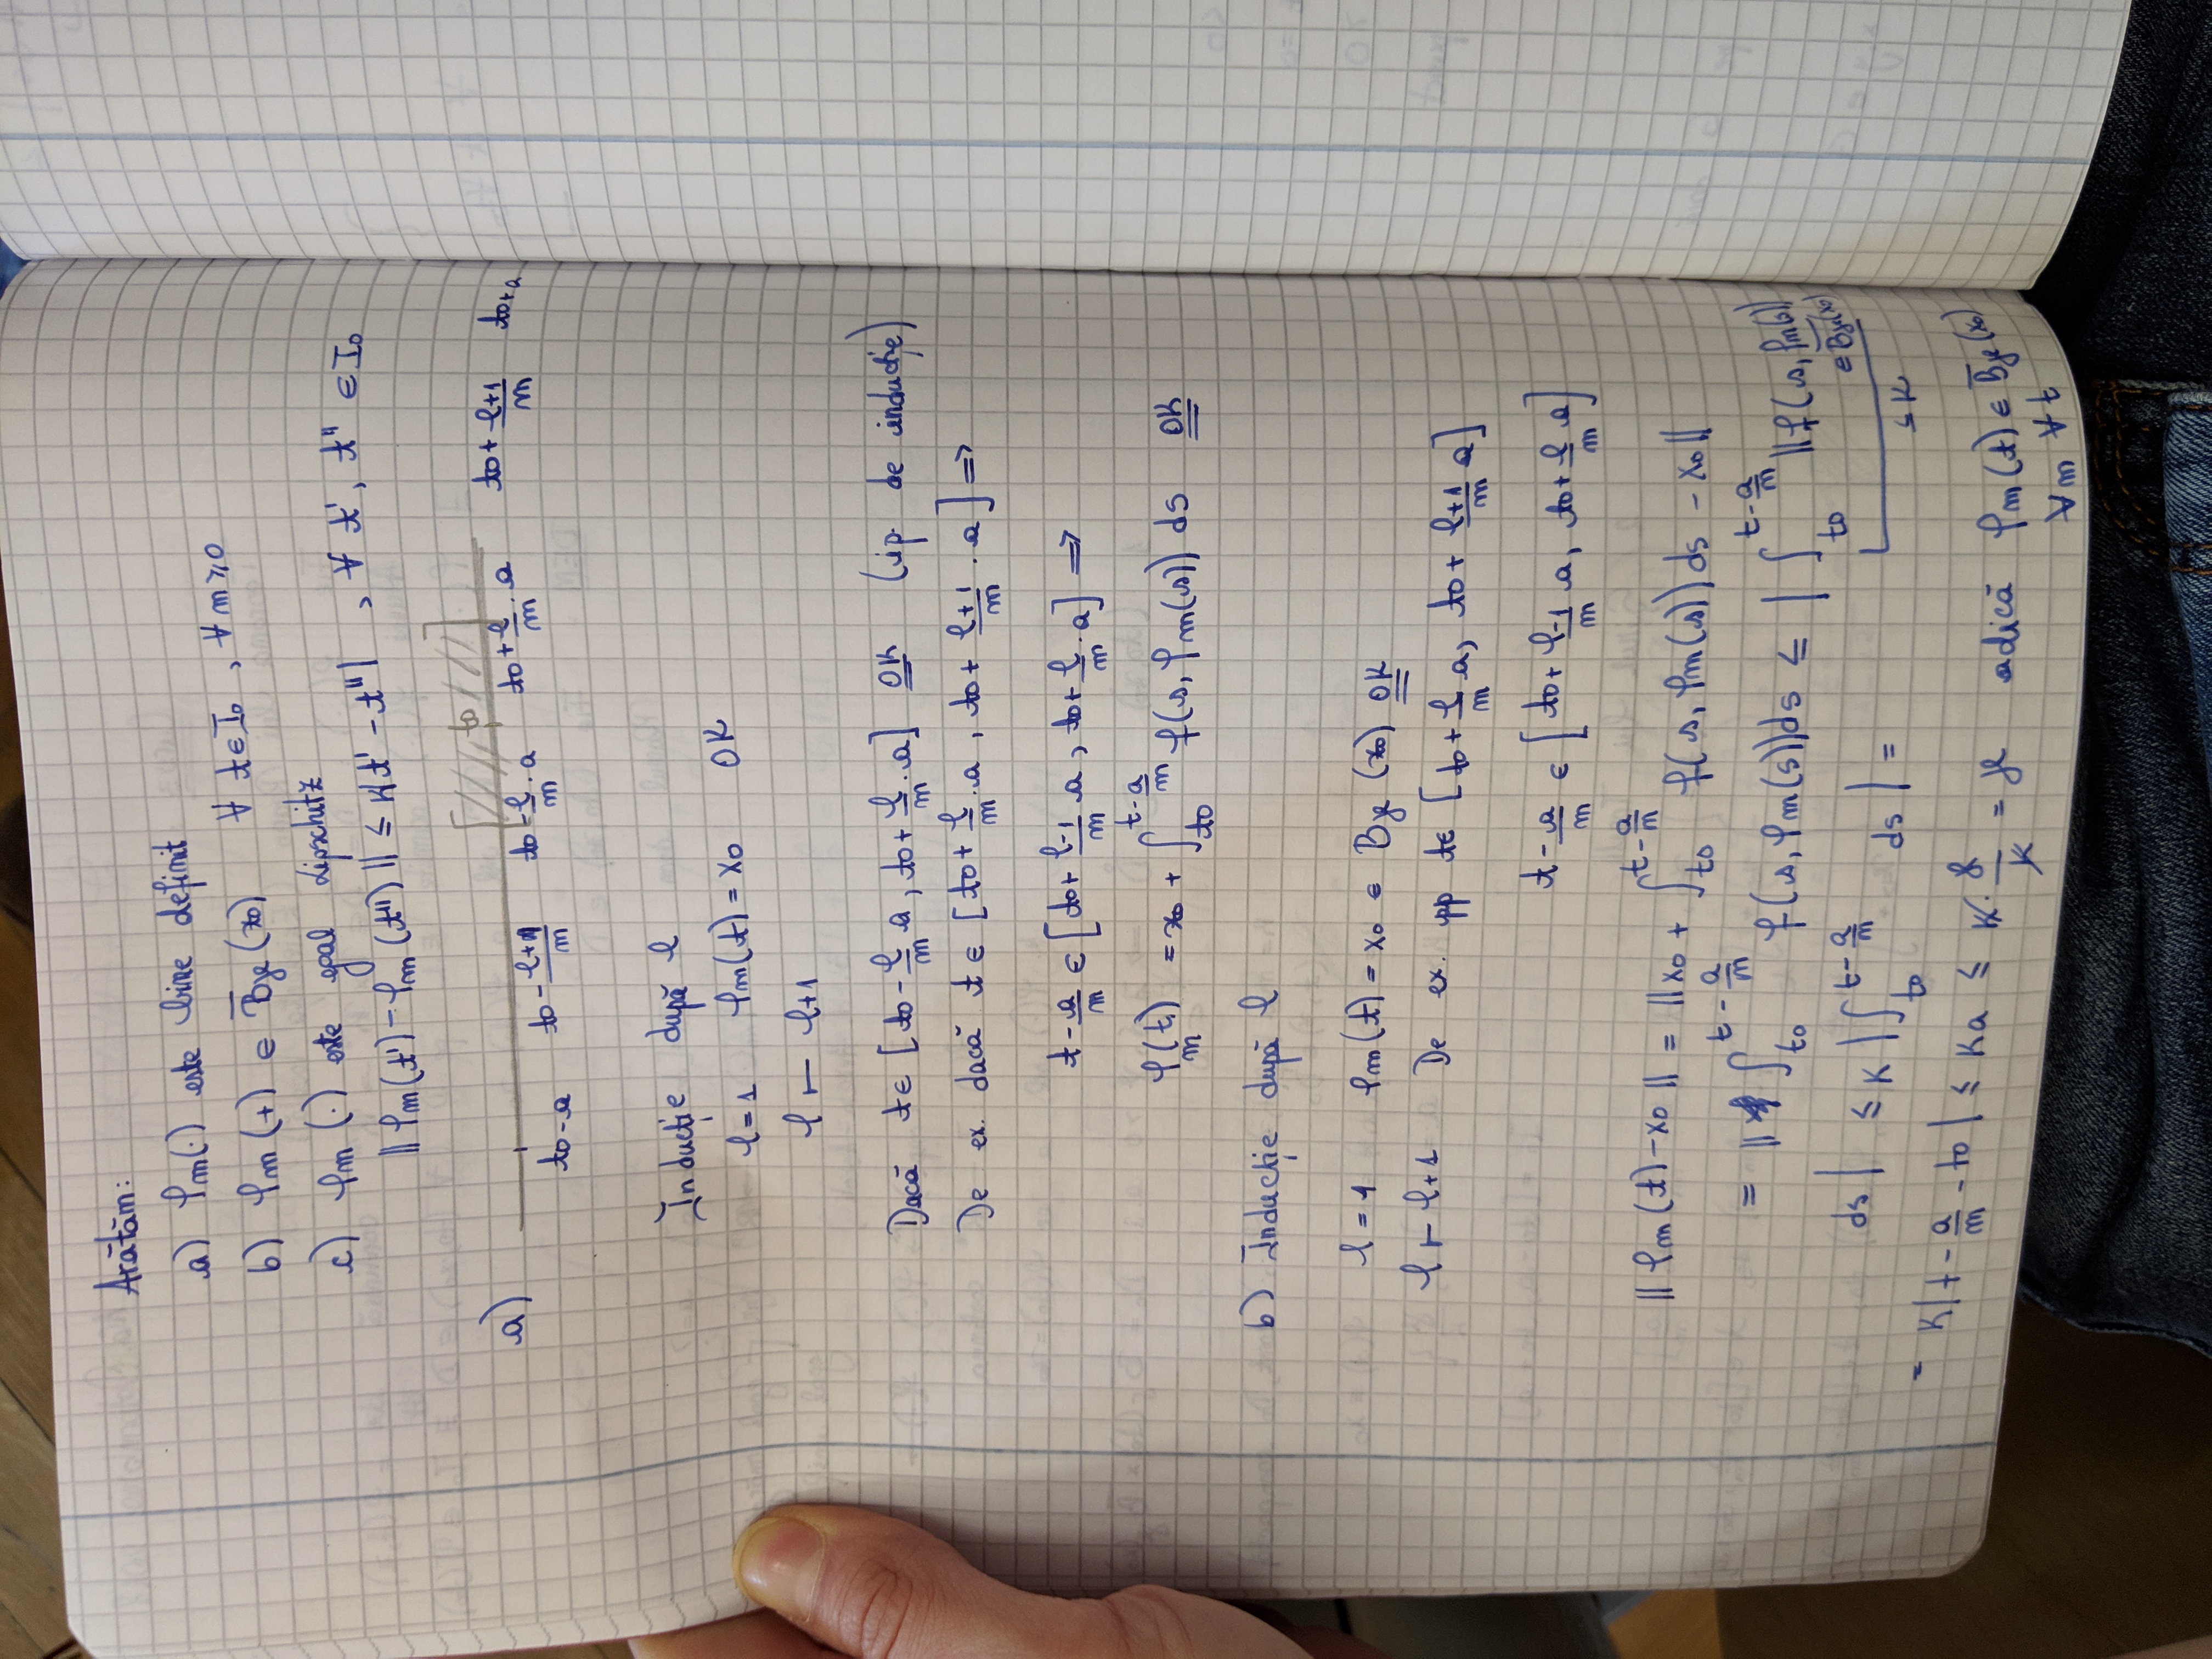 Arătăm:
a) φm(·) este bine definit
b) φm(t) ∈ B̄ɣe(x0) ∀ t∈I0 , ∀ m⩾0
c) φm(·) este egal Lipschitz
‖φm(t') - φm(t'')‖ ≤ K|t' - t''| , ∀ t', t'' ∈ I0
a)
t0
t0-a t0-(l+1)/m t0-l/m·a t0+l/m·a t0+(l+1)/m t0+a
Inducție după l
l=1 φm(t)=x0 OK
l ⊢ l+1
Dacă t∈[t0-l/m a, t0+l/m·a] OK (ip. de inducție)
De ex. dacă t∈[t0+l/m·a, t0+(l+1)/m·a] ⇒
t-a/m ∈ [t0+(l-1)/m a, t0+l/m·a] ⇒
φm(t) = x0 + ∫_{t0}^{t-a/m} f(s, φm(s)) ds OK
b) Inducție după l
l=1 φm(t)=x0 ∈ Bɣe(x0) OK
l ⊢ l+1 De ex. pp t∈[t0+l/m a, t0+(l+1)/m a]
t-a/m ∈ [t0+(l-1)/m a, t0+l/m a]
‖φm(t)-x0‖ = ‖x0 + ∫_{t0}^{t-a/m} f(s, φm(s))ds - x0‖
= ‖∫_{t0}^{t-a/m} f(s, φm(s))ds ≤ |∫_{t0}^{t-a/m} ‖f(s, φm(s))
∈B̄ɣe(x0)
ds| ≤ K|∫_{t0}^{t-a/m} ds| =
≤ K
= K|t-a/m-t0| ≤ Ka ≤ K·ɣe/K = ɣe adică φm(t)∈B̄ɣe(x0)
∀m ∀t